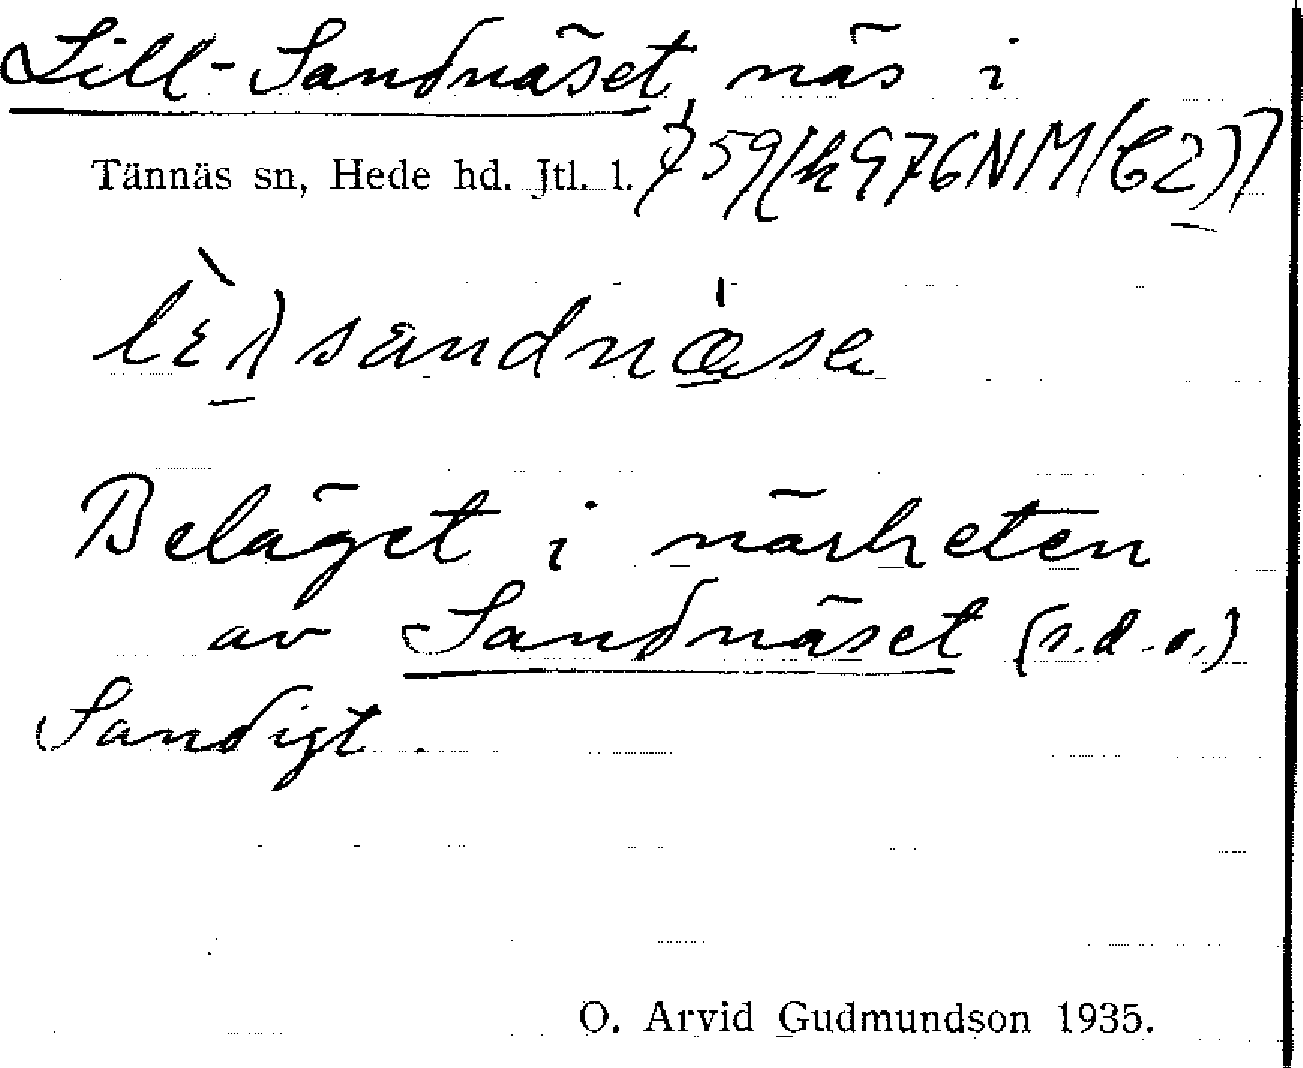 Lill-Sandnäset, näs i
Tännäs sn, Hede hd. Jtl. l.
Beläget i närheten
av Sandnäset (s.d.o.)
Sandigt.
O. Arvid Gudmundson 1935.